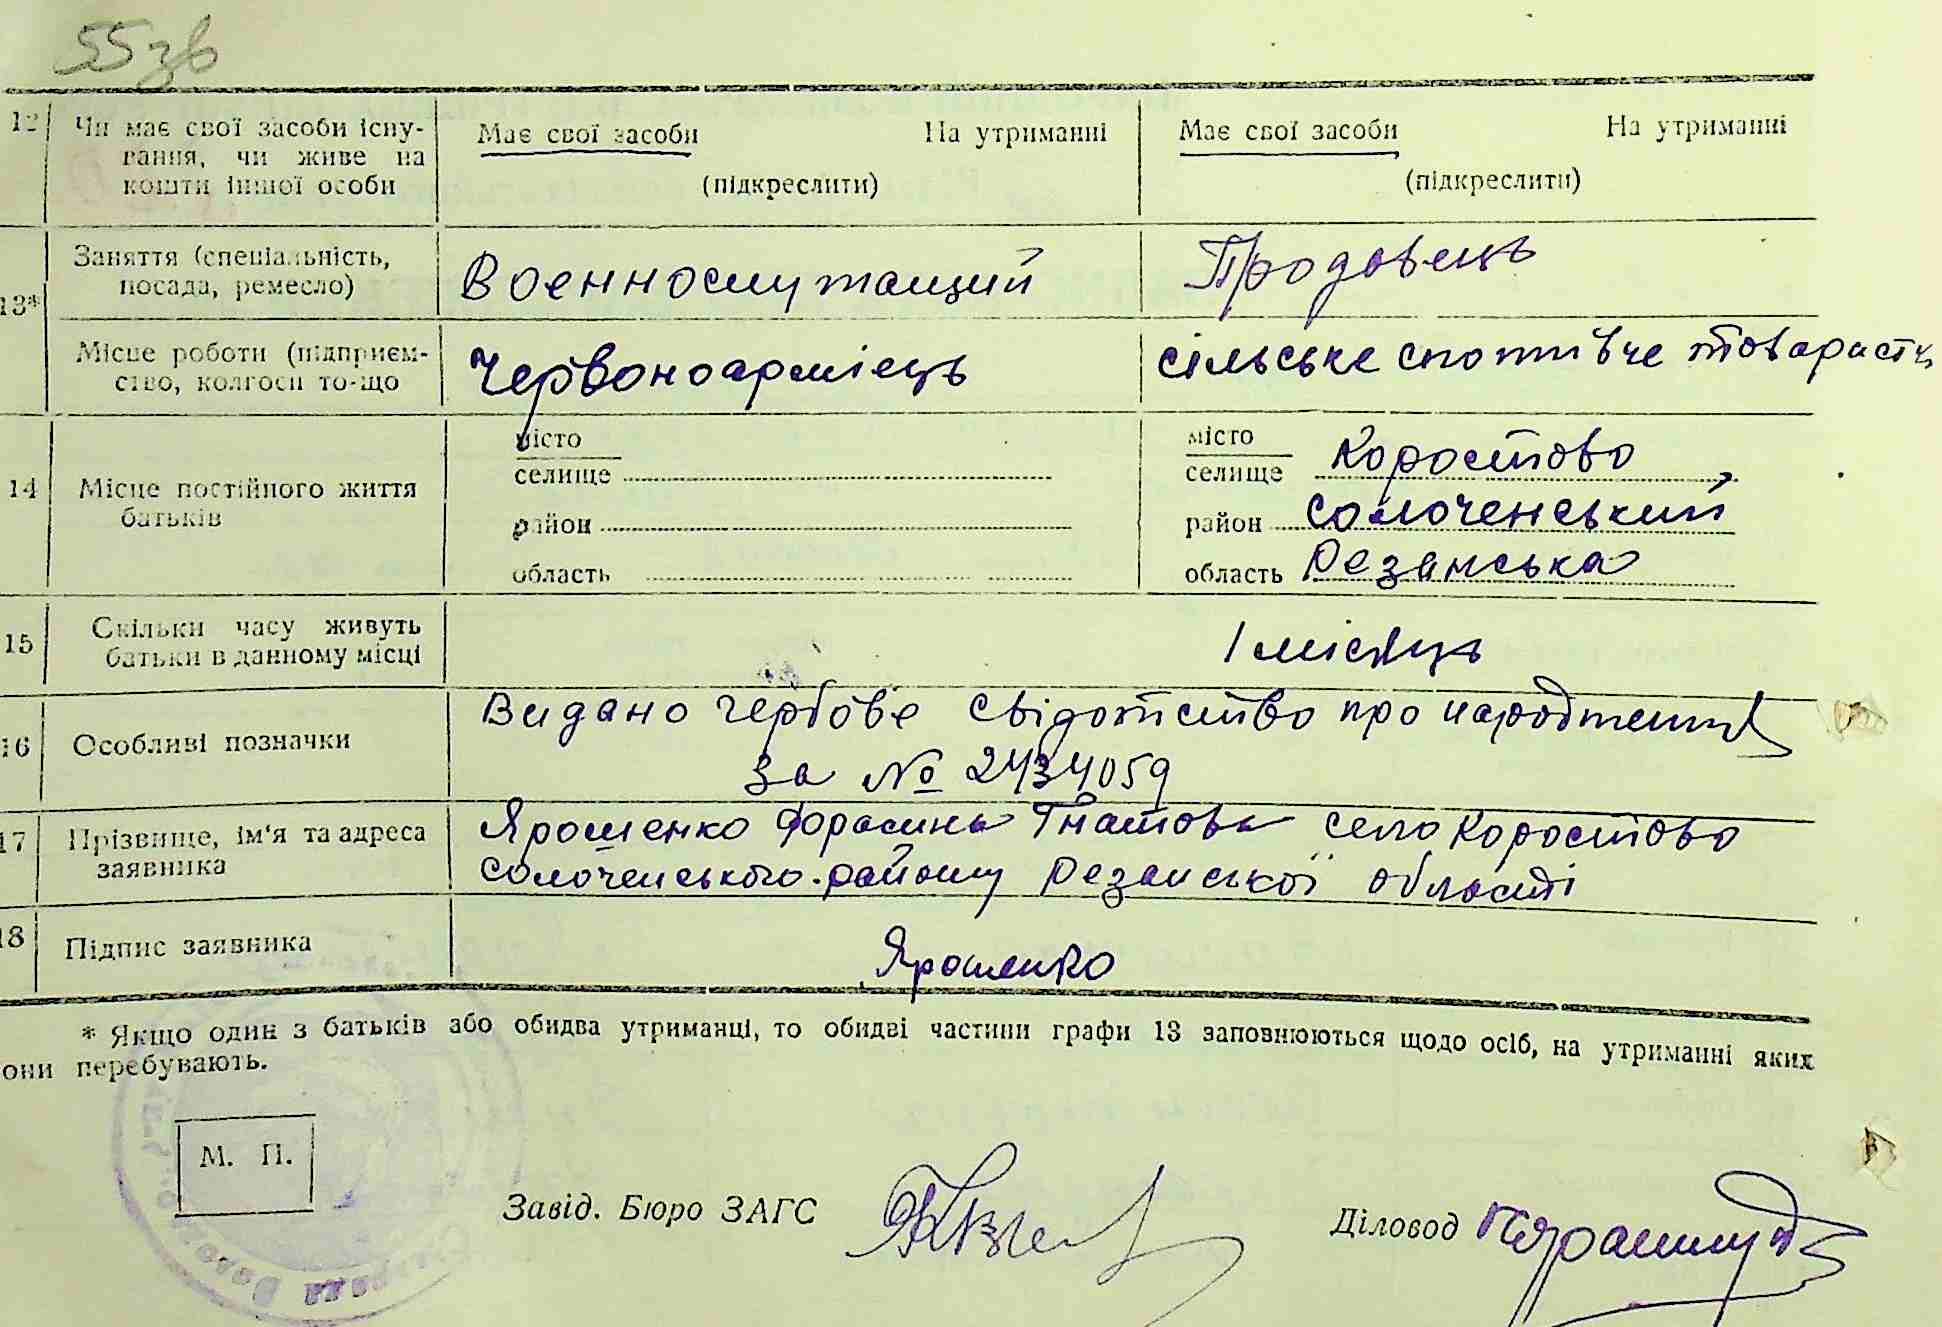 55зв
12 Чи має свої засоби існу- Має свої засоби На утриманні Має свої засоби На утриманні
вання, чи живе на
кошти іншої особи (підкреслити) (підкреслити)
13* Заняття (спеціальність, Военнослутащий Продавець
посада, ремесло)
Місце роботи (підприєм- Червоноармієць сільське споттівче товариств
ство, колгосп то-що
14 Місце постійного життя місто місто Коростово
батьків селище селище
район район Солоченський
область область Резанська
15 Скільки часу живуть 1 місяць
батьки в данному місці
16 Особливі позначки Видано гербове свідотство про народтення
за № 2434059
17 Прізвище, ім'я та адреса Ярошенко Гнатовa село Коростово
заявника Солоченського району Резанської області
18 Підпис заявника Ярошенко
* Якщо один з батьків або обидва утриманці, то обидві частини графи 13 заповнюються щодо осіб, на утриманні яких
они перебувають.
М. П.
Завід. Бюро ЗАГС Діловод